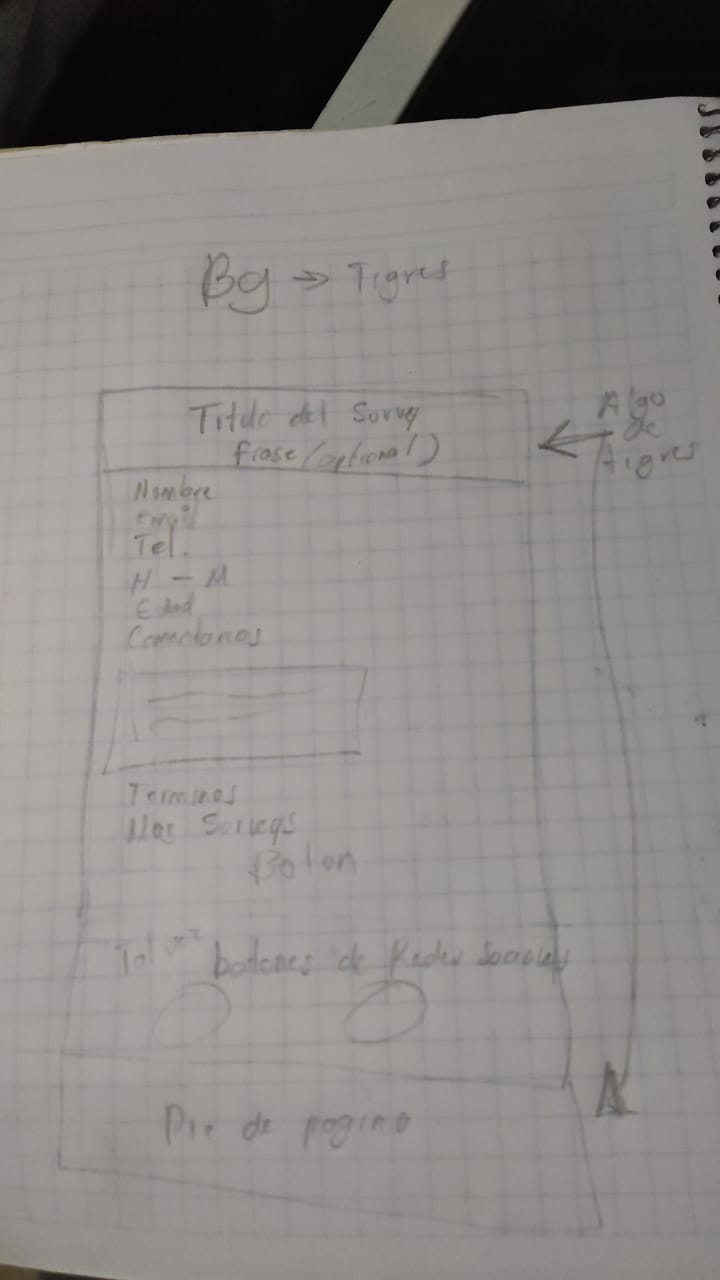 Bg → Tigres
Titulo del Survey
frase (optional)
Algo
de
tigres
Nombre
email
Tel.
H - M
Edad
Comentarios
Terminos
Mas Surveys
Boton
Tal vez botones de Redes Sociales
Pie de pagina